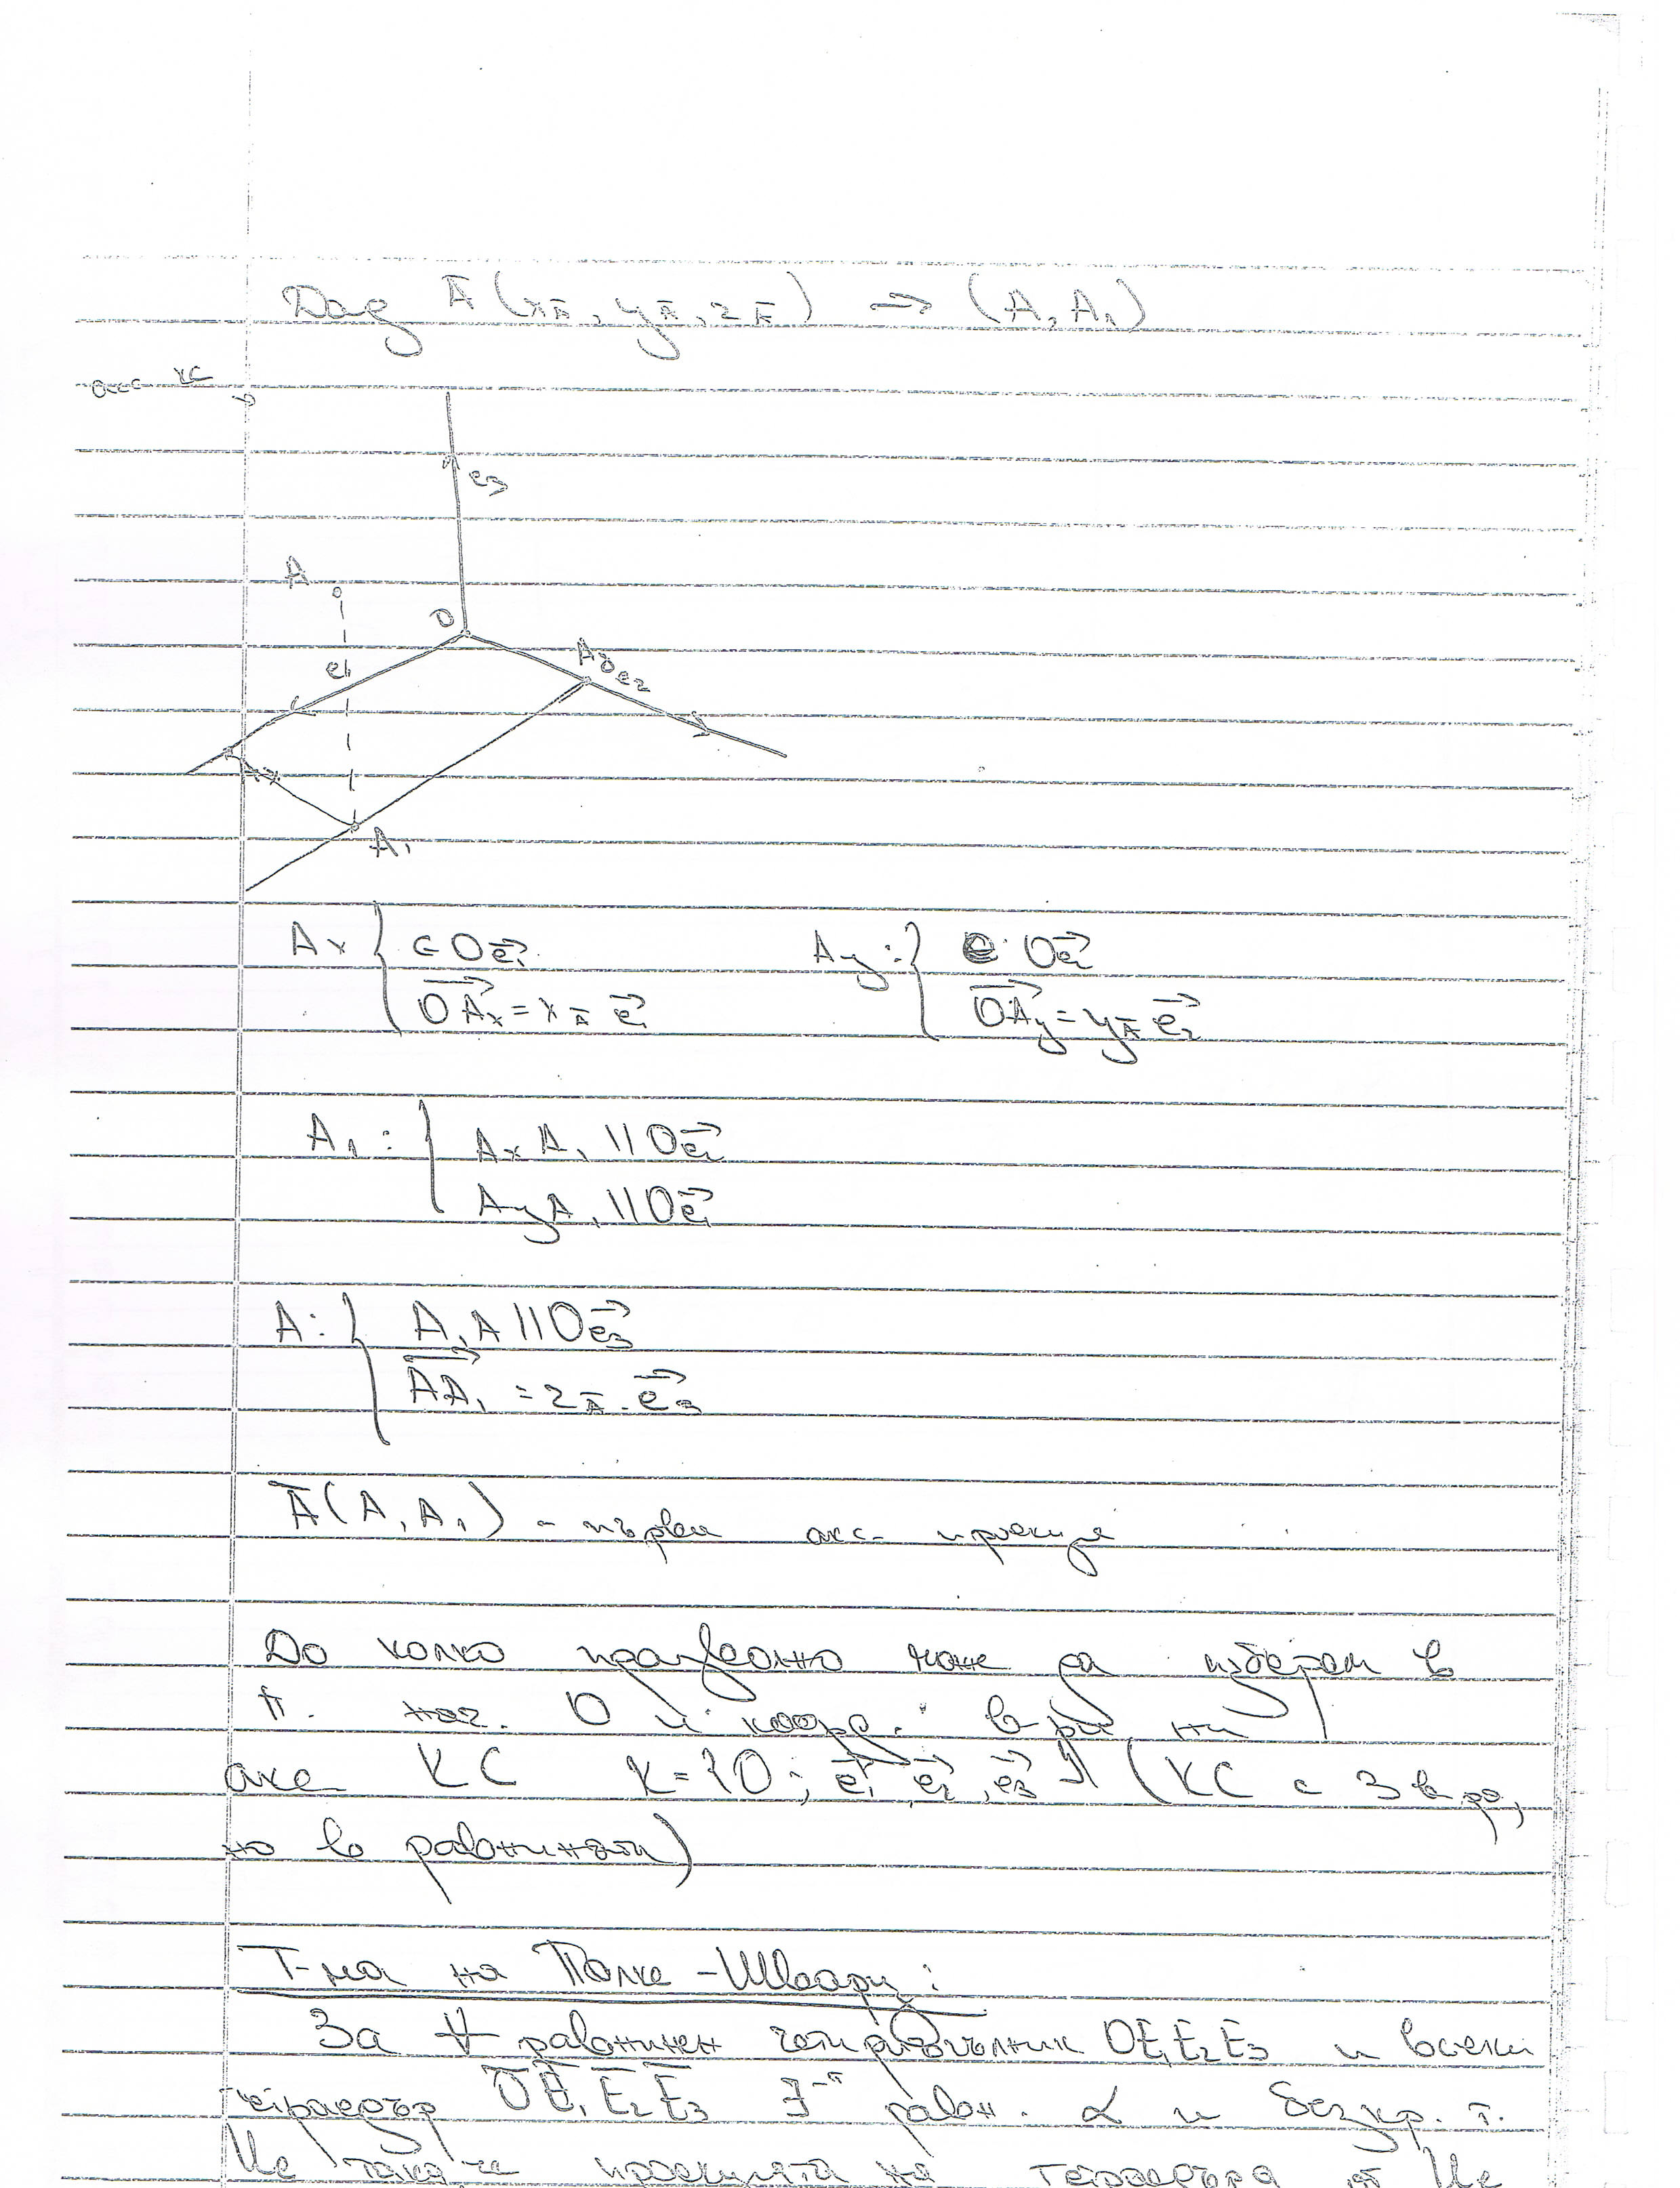 Дад Ā (x_Ā, y_Ā, z_Ā) → (A, A₁)
КС
e₃
A
O
e₁
A_y
e₂
A₁
A_x { ∈ Oe₁→ A_y : { ∈ Oe₂→
OA_x→ = x_Ā e₁→ OA_y→ = y_Ā e₂→
A₁ : { A_x A₁ || Oe₂→
A_y A₁ || Oe₁→
A : { A₁A || Oe₃→
AA₁→ = z_Ā . e₃→
Ā(A, A₁) - първа акс. проекция
До колко произволно може да изберем в
π. нач. O и коорд. в-ри на
акс КС K = {O ; e₁→, e₂→, e₃→} (КС с 3 в-ра,
но в равнината)
Т-ма на Полке - Шварц :
За ∀ равнинен четириъгълник OE₁E₂E₃ и всеки
тетраедър ŌĒ₁Ē₂Ē₃ ∃ равн. α и безкр. т.
Uс така че проекцията на тетраедъра от Uс